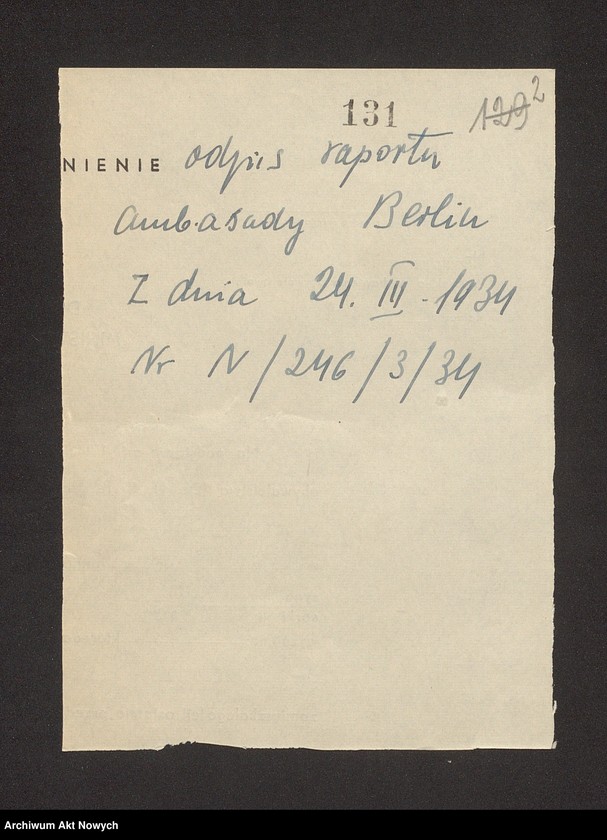 131
1292
NIENIE odpis raportu
Ambasady Berlin
Z dnia 24. III. 1934
Nr N/246/3/34
Archiwum Akt Nowych